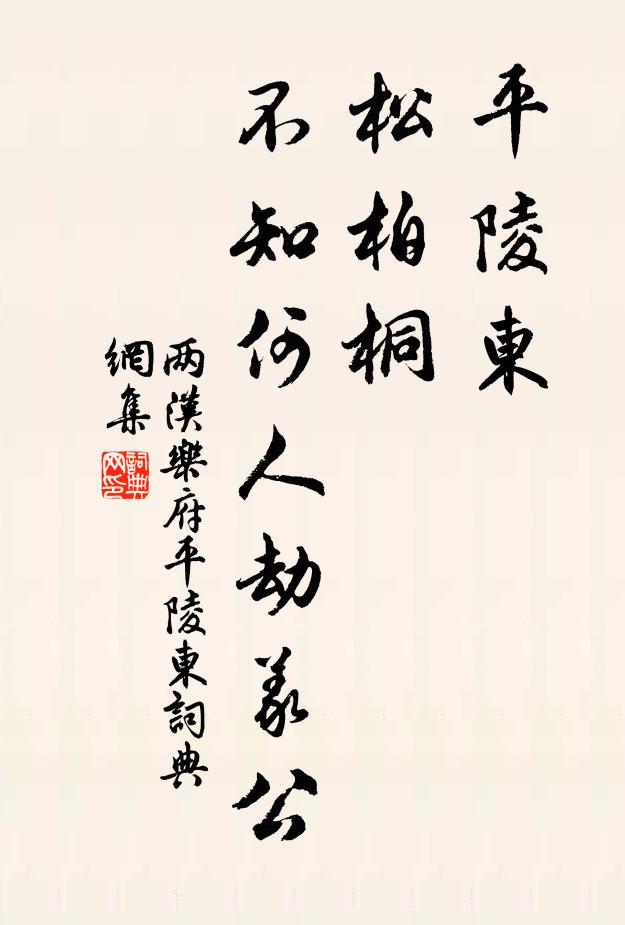 平陵東
松柏桐
不知何人劫義公
两漢樂府平陵東詞典
網集
詞典網印